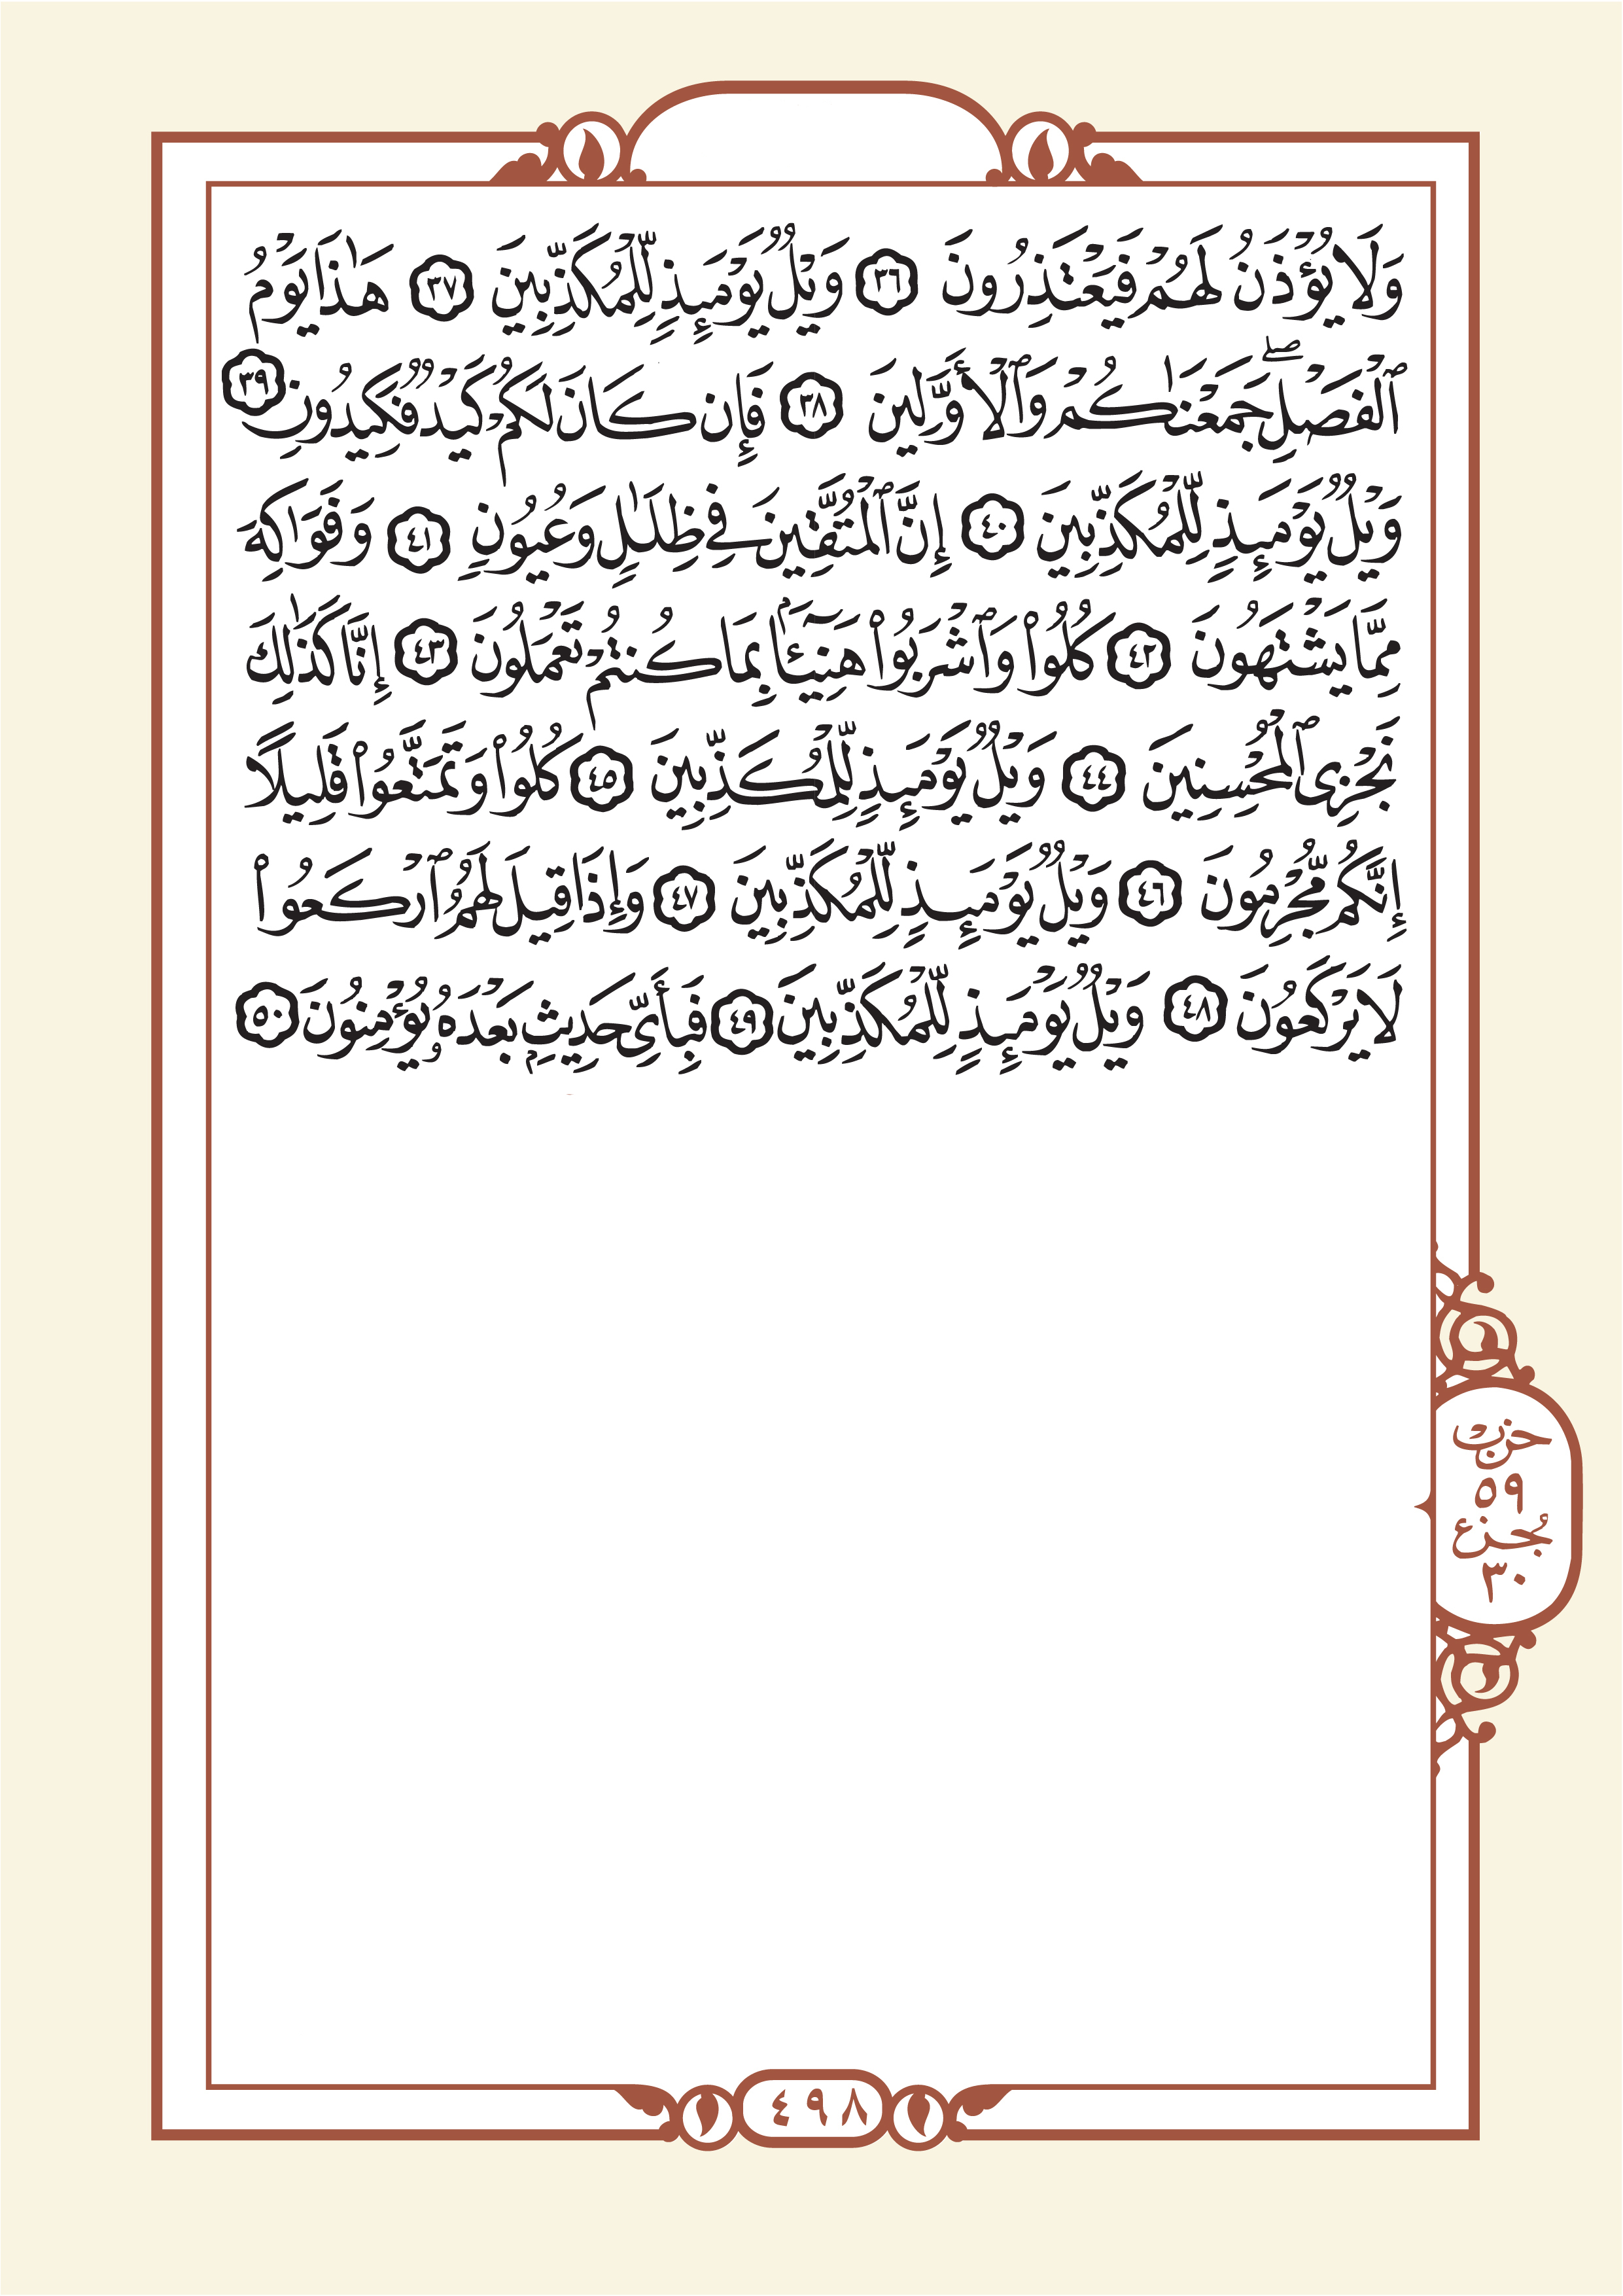 وَلَا يُؤْذَنُ لَهُمْ فَيَعْتَذِرُونَ ٣٦ وَيْلٌ يَوْمَئِذٍ لِّلْمُكَذِّبِينَ ٣٧ هَٰذَا يَوْمُ
ٱلْفَصْلِۖ جَمَعْنَٰكُمْ وَٱلْأَوَّلِينَ ٣٨ فَإِن كَانَ لَكُمْ كَيْدٌ فَكِيدُونِ ٣٩
وَيْلٌ يَوْمَئِذٍ لِّلْمُكَذِّبِينَ ٤٠ إِنَّ ٱلْمُتَّقِينَ فِي ظِلَٰلٍ وَعُيُونٍ ٤١ وَفَوَٰكِهَ
مِمَّا يَشْتَهُونَ ٤٢ كُلُوا۟ وَٱشْرَبُوا۟ هَنِيٓـَٔۢا بِمَا كُنتُمْ تَعْمَلُونَ ٤٣ إِنَّا كَذَٰلِكَ
نَجْزِى ٱلْمُحْسِنِينَ ٤٤ وَيْلٌ يَوْمَئِذٍ لِّلْمُكَذِّبِينَ ٤٥ كُلُوا۟ وَتَمَتَّعُوا۟ قَلِيلًا
إِنَّكُم مُّجْرِمُونَ ٤٦ وَيْلٌ يَوْمَئِذٍ لِّلْمُكَذِّبِينَ ٤٧ وَإِذَا قِيلَ لَهُمُ ٱرْكَعُوا۟
لَا يَرْكَعُونَ ٤٨ وَيْلٌ يَوْمَئِذٍ لِّلْمُكَذِّبِينَ ٤٩ فَبِأَىِّ حَدِيثٍۭ بَعْدَهُۥ يُؤْمِنُونَ ٥٠
حزب
٥٩
جُزء
٣٠
٤٩٨